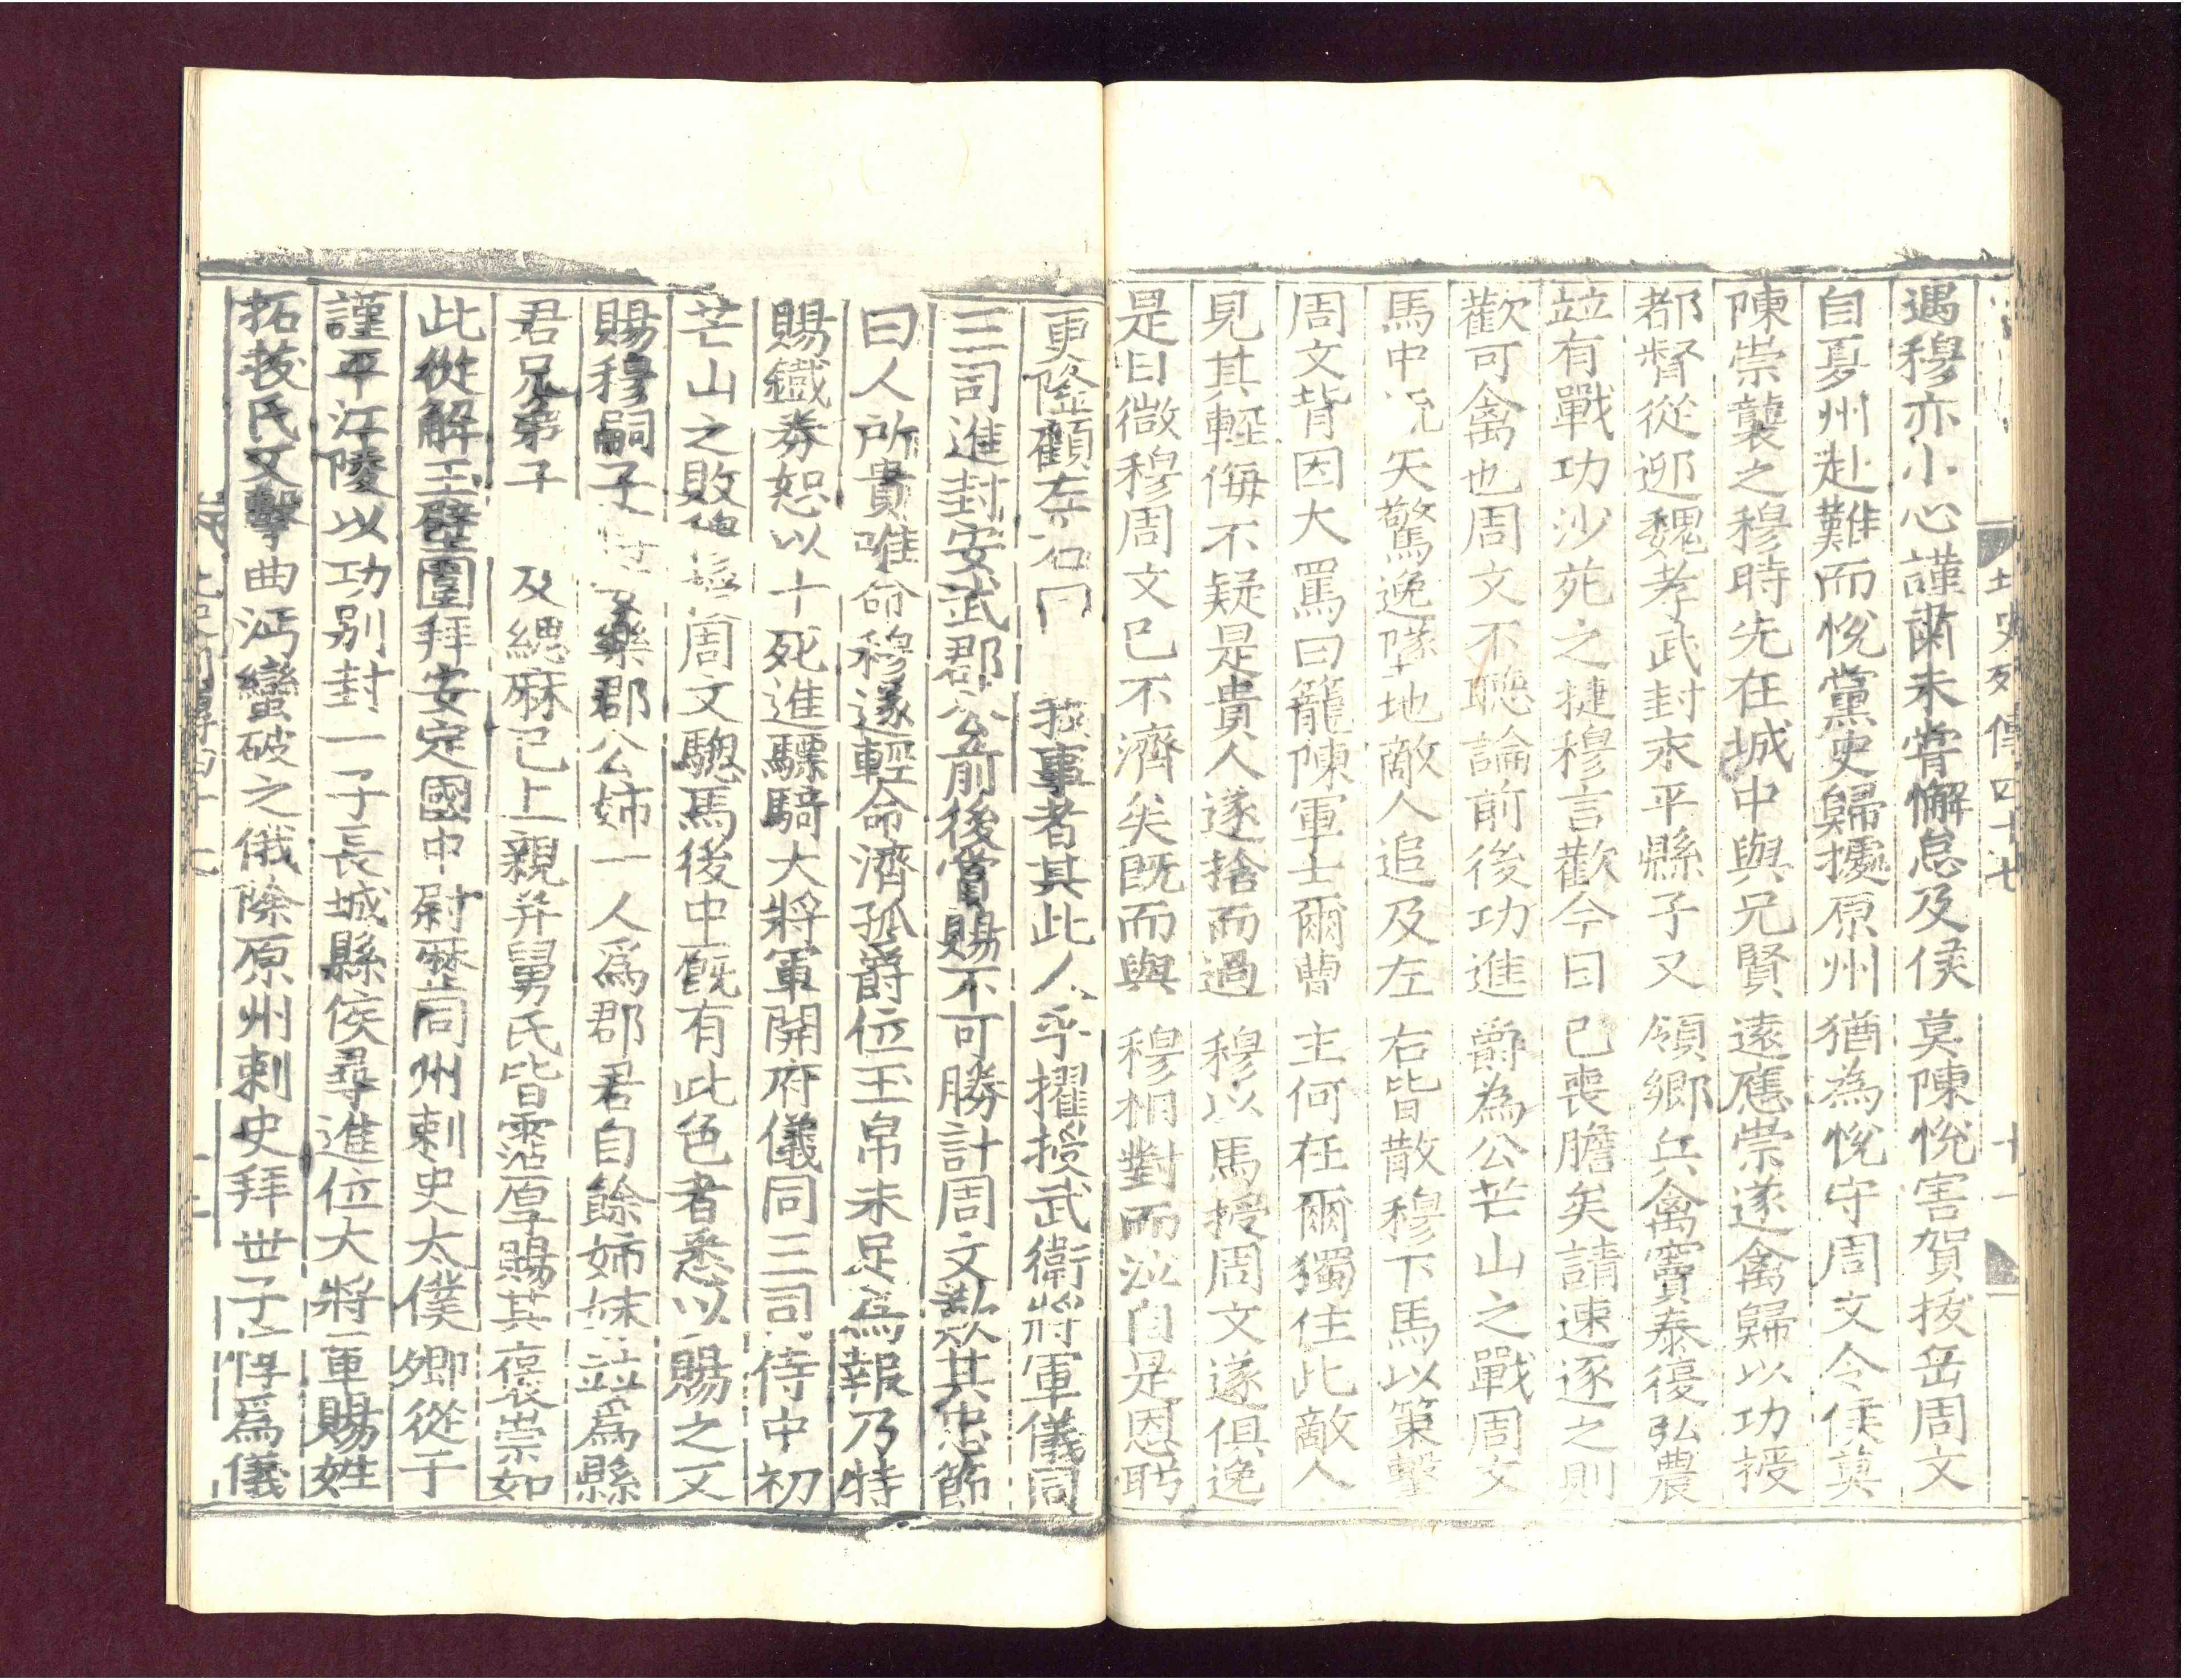 遇穆亦小心謹肅未甞懈怠及侯莫陳悅害賀拔岳周文
自夏州赴難而悅黨史歸據原州猶為悅守周文令侯莫
陳崇襲之穆時先在城中與兄賢遠應崇遂禽歸以功授
都督從迎魏孝武封永平縣子又領鄉兵禽竇泰復弘農
竝有戰功沙苑之捷穆言歡今日已喪膽矣請速逐之則
歡可禽也周文不聽論前後功進爵為公芒山之戰周文
馬中 矢驚逸墜地敵人追及左右皆散穆下馬以策擊
周文背因大罵曰籠陳軍士爾曹主何在爾獨住此敵人
見其輕侮不疑是貴人遂捨而過穆以馬授周文遂俱逸
是日微穆周文已不濟矣既而與穆相對而泣自是恩眄
更隆顧左右曰 我事者其此人乎擢授武衛將軍儀同
三司進封安武郡公前後賞賜不可勝計周文歎其忠節
曰人所貴唯命穆遂輕命濟孤爵位玉帛未足爲報乃特
賜鐵券恕以十死進驃騎大將軍開府儀同三司侍中初
芒山之敗穆 周文驄馬後中廐有此色者悉以賜之又
賜穆嗣子 樂郡公姉一人爲郡君自餘姉妹竝爲縣
君兄弟子 及緦麻已上親并舅氏皆霑厚賜其褒崇如
此從解玉壁圍拜安定國中尉歷同州刺史太僕卿從于
謹平江陵以功别封一子長城縣侯尋進位大將軍賜姓
拓拔氏又擊曲沔蠻破之俄除原州刺史拜世子惇爲儀
北史列傳四十七
十一